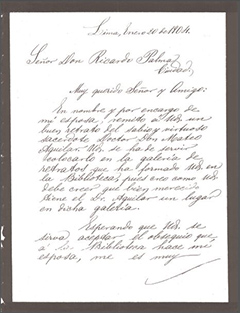 Lima, Enero 20 de 1904.
Señor Don Ricardo Palma
Ciudad.
Muy querido Señor y Amigo:
En nombre y por encargo de
mi esposa, remito a Ud. un
buen retrato del sabio y virtuoso
sacerdote Doctor Don Mateo
Aguilar. Ud. se ha de servir
colocarlo en la galería de
retratos que ha formado Ud. en
la Biblioteca, pues creo como Ud.
debe creer que bien merecido
tiene el Dr. Aguilar un lugar
en dicha galería.
Esperando que Ud. se
sirva aceptar el obsequio que
a la Biblioteca hace mi
esposa, me es muy